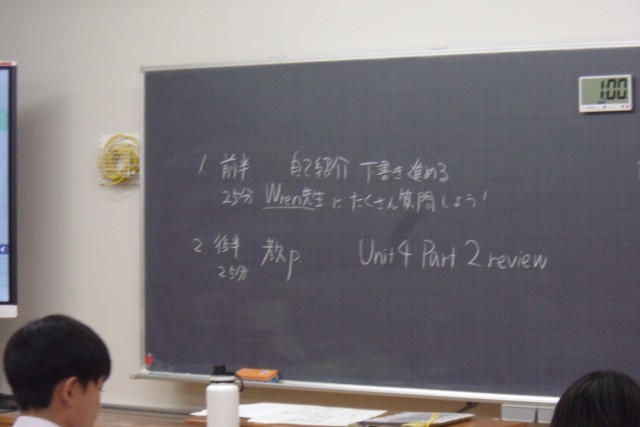 1:00
1. 前半 自己紹介 下書き進める
25分 Wren先生にたくさん質問しよう!
2. 後半 教p Unit 4 Part 2 review
25分